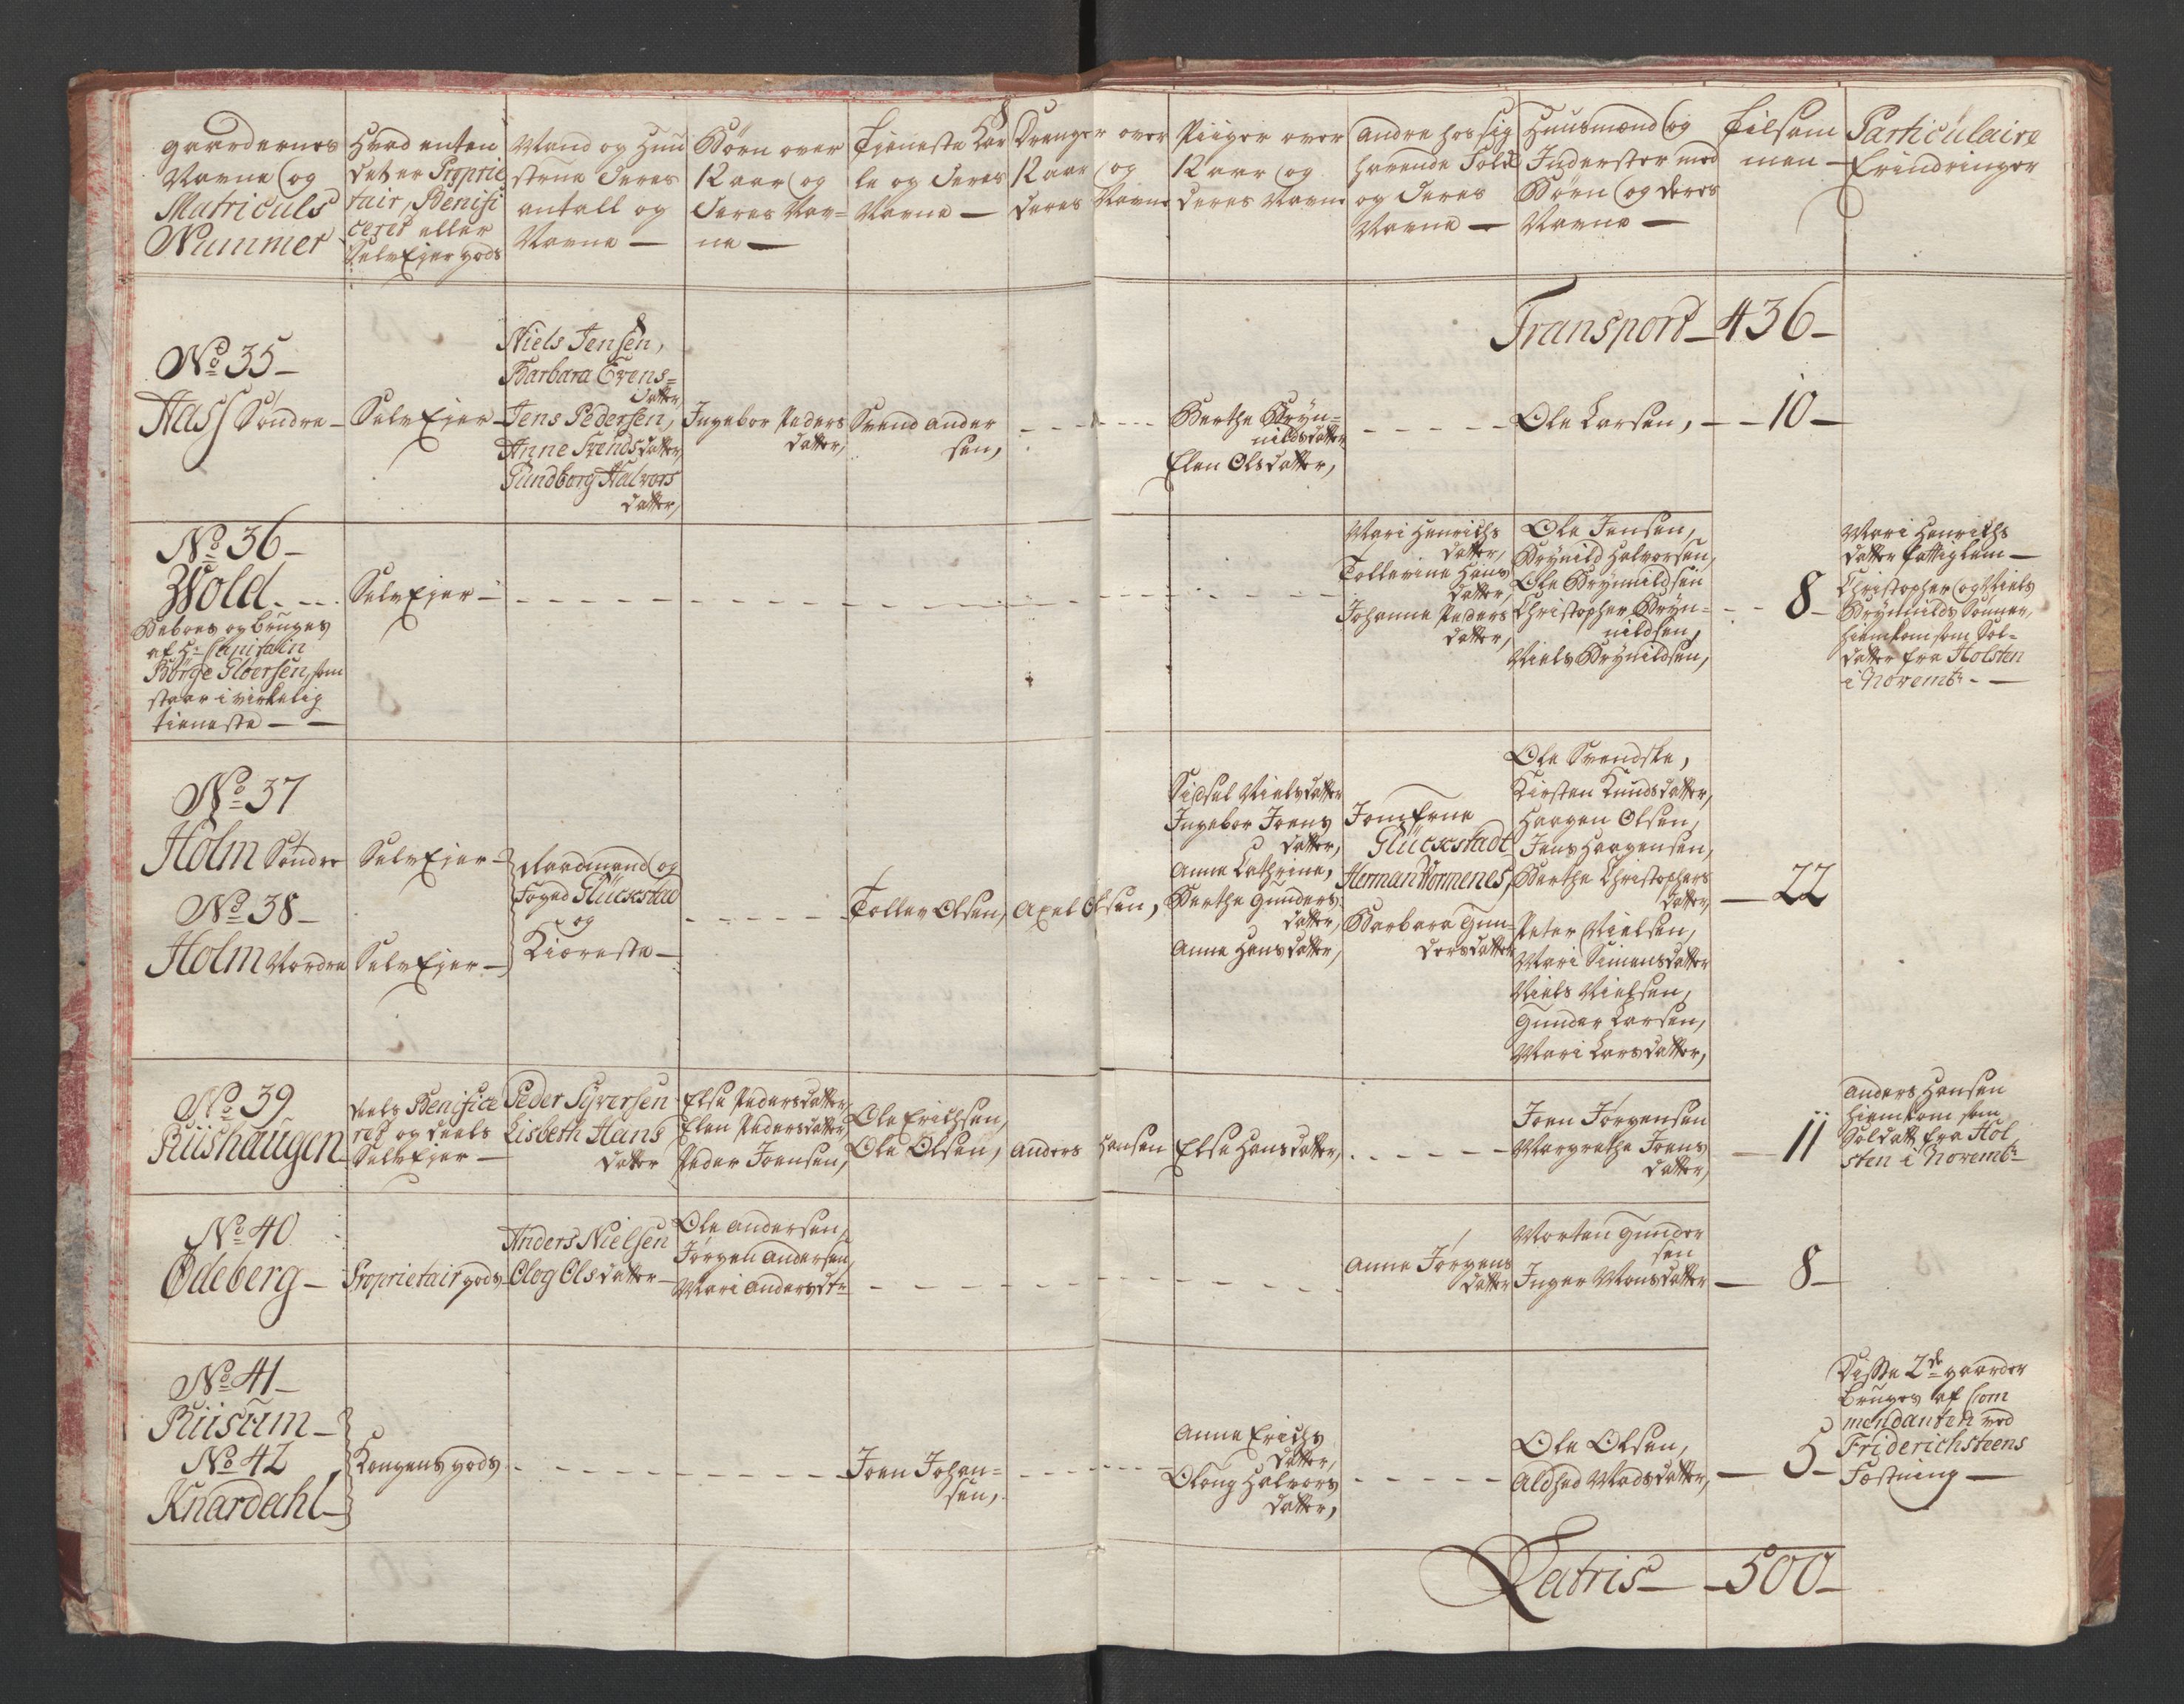 Gaardernes
Navne og
Matriculs
Nummer
Hvad enten
det er Proprie
tair, Benifi
ceret eller
SelvEjer gods
Mand og Huu
strue deres
antall og
Navne —
Børn over
12 aar og
deres Nav=
ne —
Tjeneste Kar
le og deres
Navne —
Drenge over
12 aar og
deres Navne
Piiger over
12 aar og
deres Navne
Andre hos sig
havende Folk
og deres
Navne —
Huusmænd og
Inderster med
Børn og deres
Navne —
Tilsam
men —
Particulaire
Erindringer
Transport — 436 —
No 35 —
Aass Søndre —
SelvEjer —
Niels Jensen,
Barbara Evens=
datter
Jens Pedersen,
Anne Svendsdatter,
Gundborg Halvors
datter,
Ingebor Peders
datter,
Svend Ander
sen,
Berthe Bryn=
nildsdatter
Elen Olsdatter,
Ole Larsen, — 10 —
No 36 —
Wold
Beboes og bruges
af Hr Capitain
Børge Sloersen, som
staar i virkelig
tieneste —
SelvEjer —
Mari Henrichs
datter,
Tollevine Hans
datter,
Johanne Peders
datter,
Ole Jensen,
Brynild Halvorsen,
Ole Brynnildsen
Christopher Bryn=
nildsen,
Niels Brynildsen,
8 —
Mari Henrichs
datter fattiglem —
Christopher og Niels
Brynnilds Sønner,
hiemkom som Sol=
dater fra Holsten
i Novembr —
No 37
Holm Søndre
SelvEjer —
No 38 —
Holm Nordre
SelvEjer —
Raadmand og
Foged Glückstad
og
Kiæreste —
Tollev Olsen,
Axel Olsen,
Sidsel Nielsdatter
Ingebor Joens
datter,
Anne Cathrine,
Berthe Gunders
datter,
Anne Hansdatter,
Jomfrue
Glückstadt
Herman Wormenes,
Barbara Gun=
dersdatter
Ole Svendske,
Kirsten Knudsdatter,
Haagen Olsen,
Jens Haagensen,
Berthe Christophers
datter,
Peter Nielsen,
Mari Simensdatter
Niels Nielsen,
Gunder Larsen,
Mari Larsdatter,
— 22
No 39
Riishaugen
deels Benifice
ret og deels
SelvEjer —
Peder Syversen
Lisbeth Hans
datter
Else Pedersdatter,
Elen Pedersdatter,
Peder Joensen,
Ole Erichsen,
Ole Olsen,
Anders Hansen
Else Hansdatter,
Joen Jørgensen
Margrethe Joens
datter,
— 11
Anders Hansen
hiemkom som
Soldatt fra Hol
sten i Novembr
No 40
Ødeberg —
Proprietair gods
Anders Nielsen
Olog Olsdatter —
Ole Andersen,
Jørgen Andersen,
Mari Andersdtr
Anne Jørgens
datter
Morten Gunder
sen
Inger Monsdatter
— 8 —
No 41 —
Riisum —
No 42
Knardahl —
Kongens gods
Joen Johan=
sen,
Anne Erichs
datter,
Oloug Halvors
datter,
Ole Olsen,
Aldhed Madsdatter,
— 5 —
Disse 2de gaarder
bruges af Com
mendanten ved
Friderichsteens
Fæstning —
Latris — 500 —